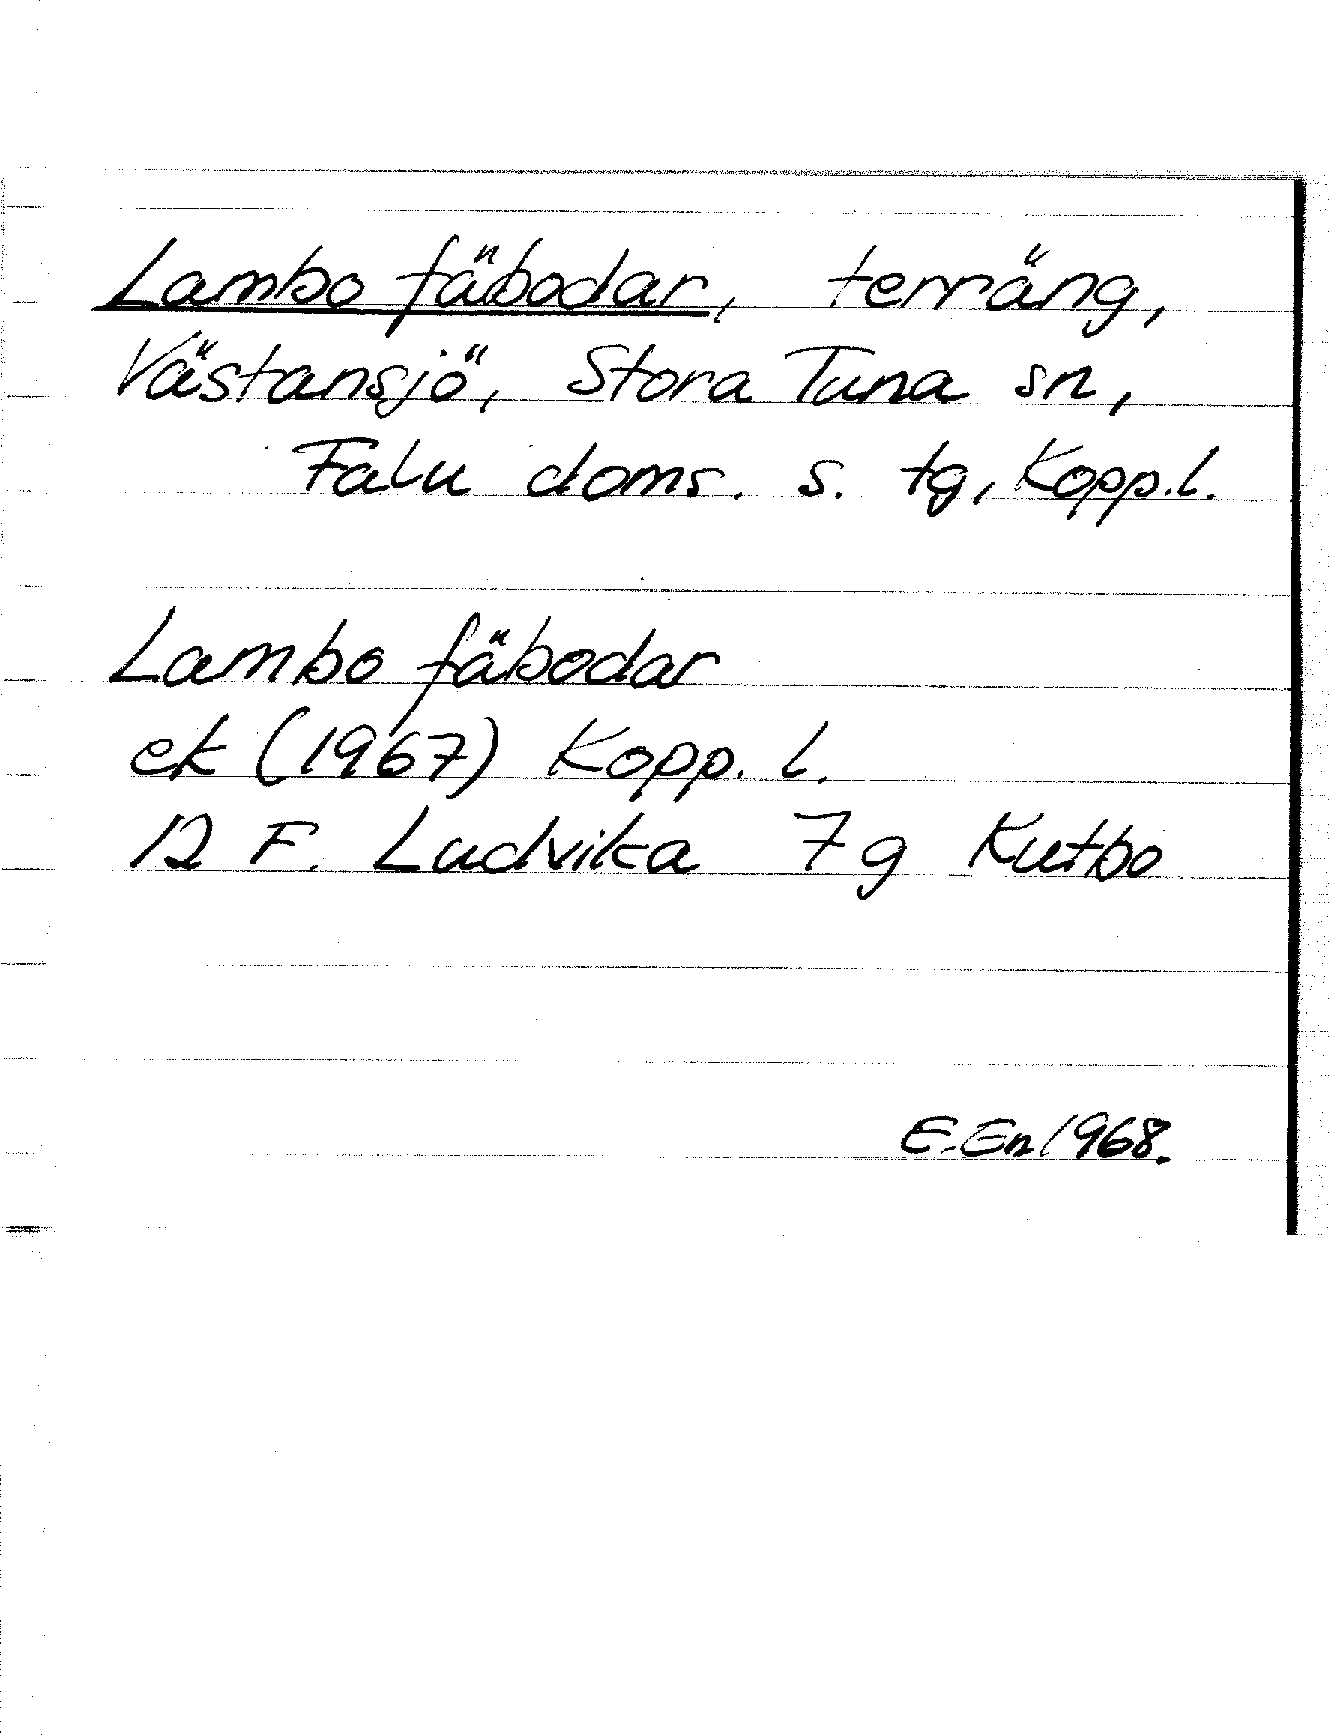 Lambo fäbodar, terräng,
Västansjö, Stora Tuna sn,
Falu doms. s. tg, Kopp.l.
Lambo fäbodar
ek (1967) Kopp. l.
12 F. Ludvika 7 g Kutbo
E.En 1968.